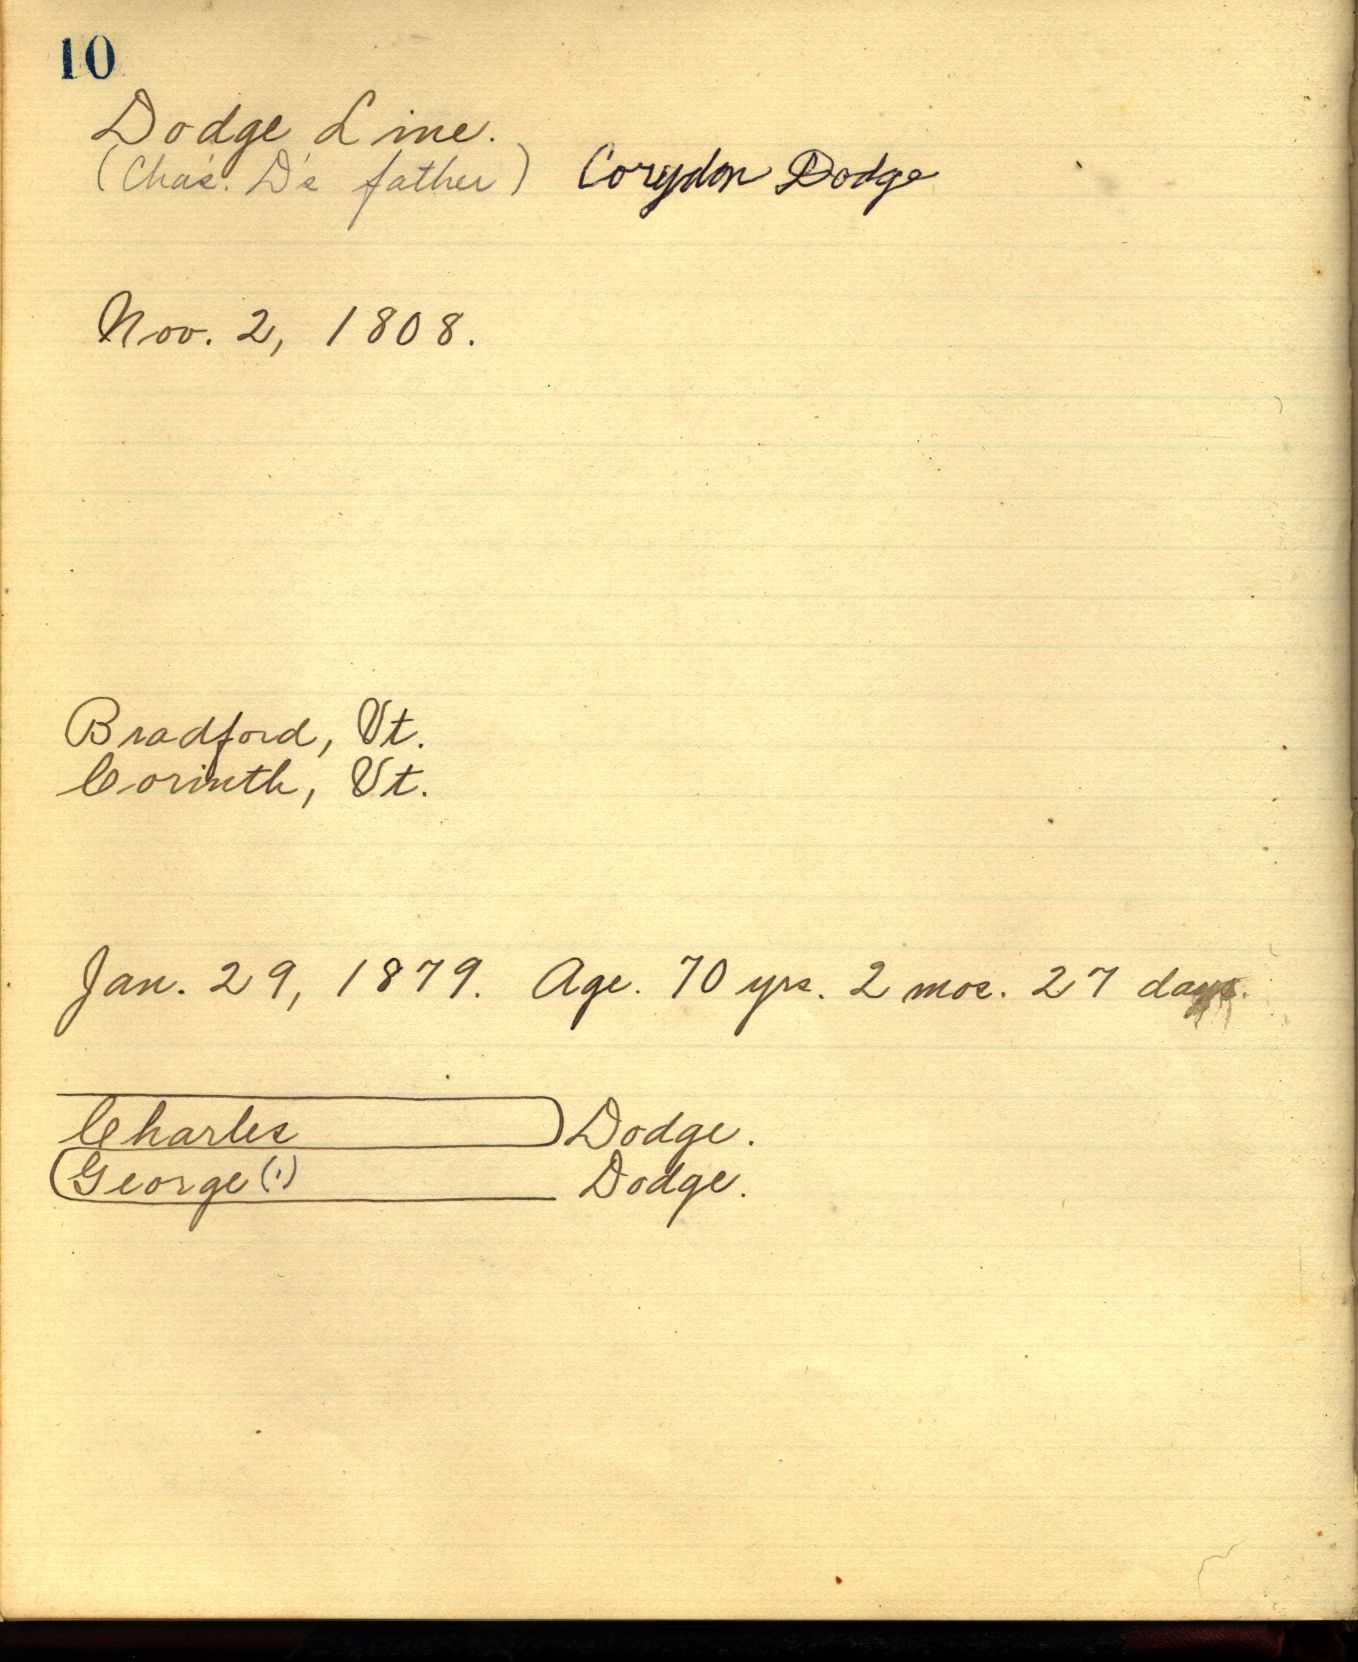 10
Dodge Line.
(Cha's. D's father) Corydon Dodge
Nov. 2, 1808.
Bradford, Vt.
Corinth, Vt.
Jan. 29, 1879. Age. 70 yrs. 2 mos. 27 days.
Charles Dodge.
George (1) Dodge.